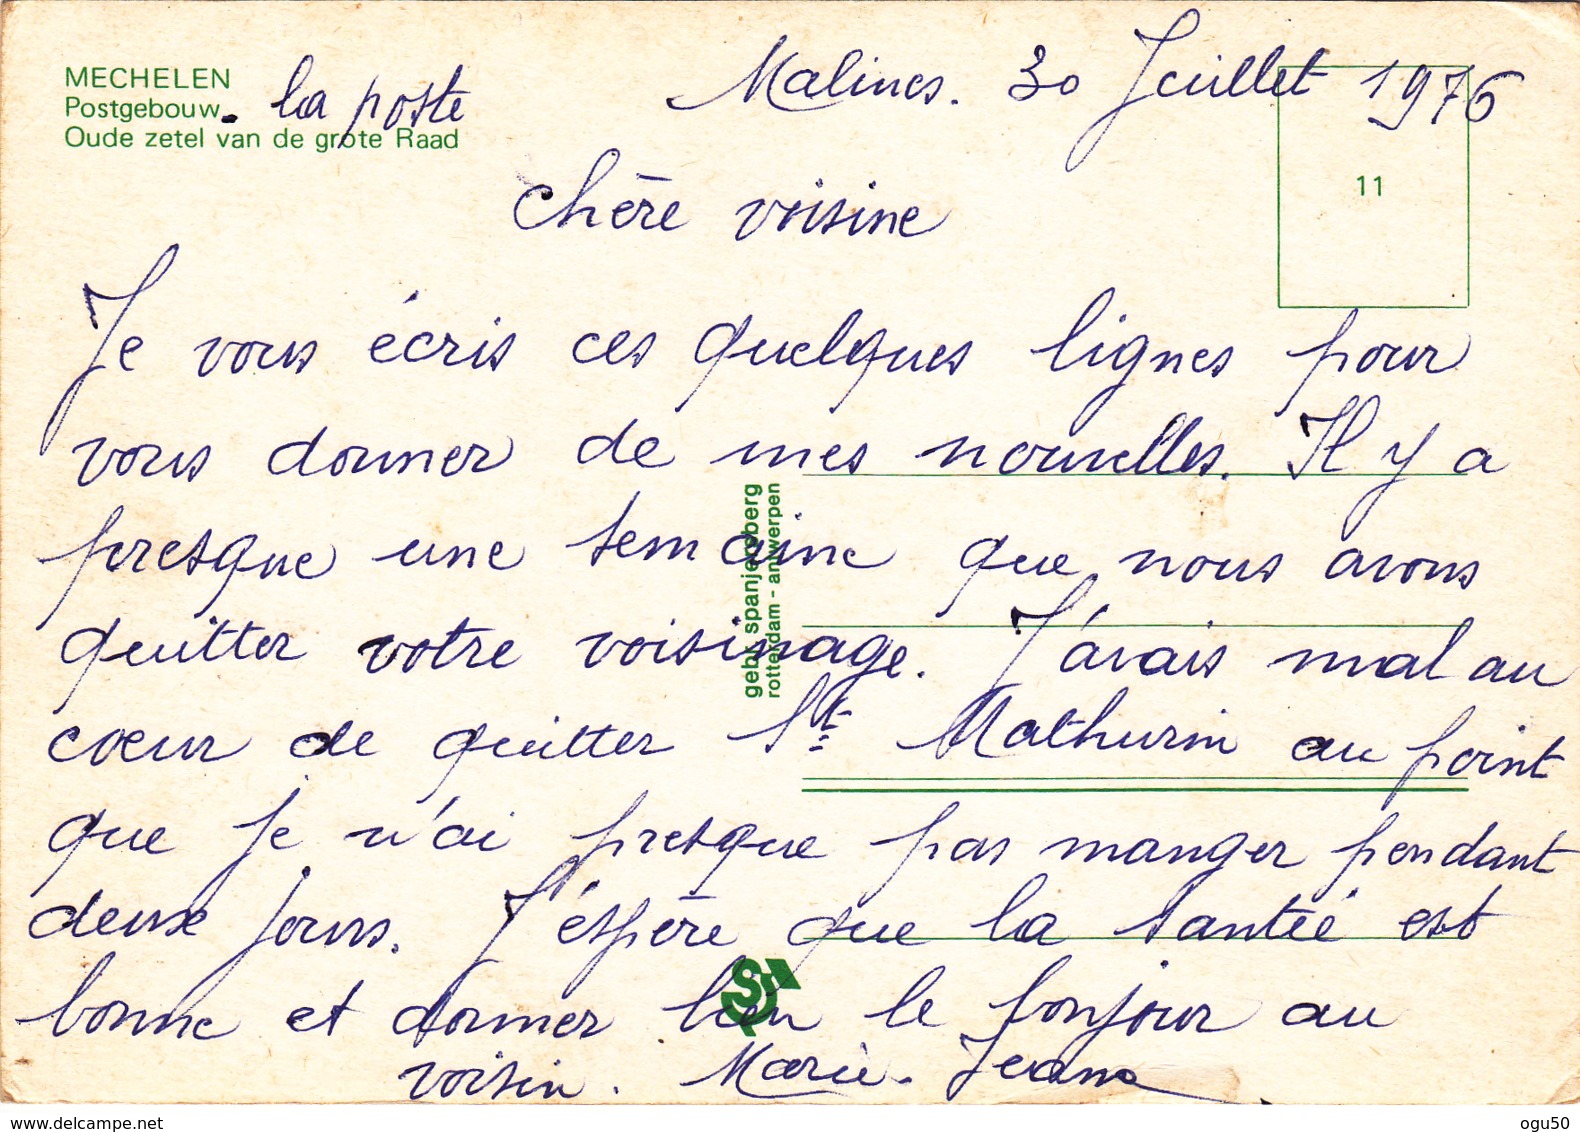 MECHELEN
Postgebouw - la poste
Oude zetel van de grote Raad
Malines. 30 Juillet 1976
11
Chère voisine
Je vous écris ces quelques lignes pour
vous donner de mes nouvelles. Il y a
presque une semaine que nous avons
quitter votre voisinage. J'avais mal au
coeur de quitter St Mathurin au point
que je n'ai presque pas manger pendant
deux jours. J'éspère que la santée est
bonne et donner bien le bonjour au
voisin. Marie-Jeanne
gebr. spanjersberg
rotterdam - antwerpen
www.delcampe.net
ogu50